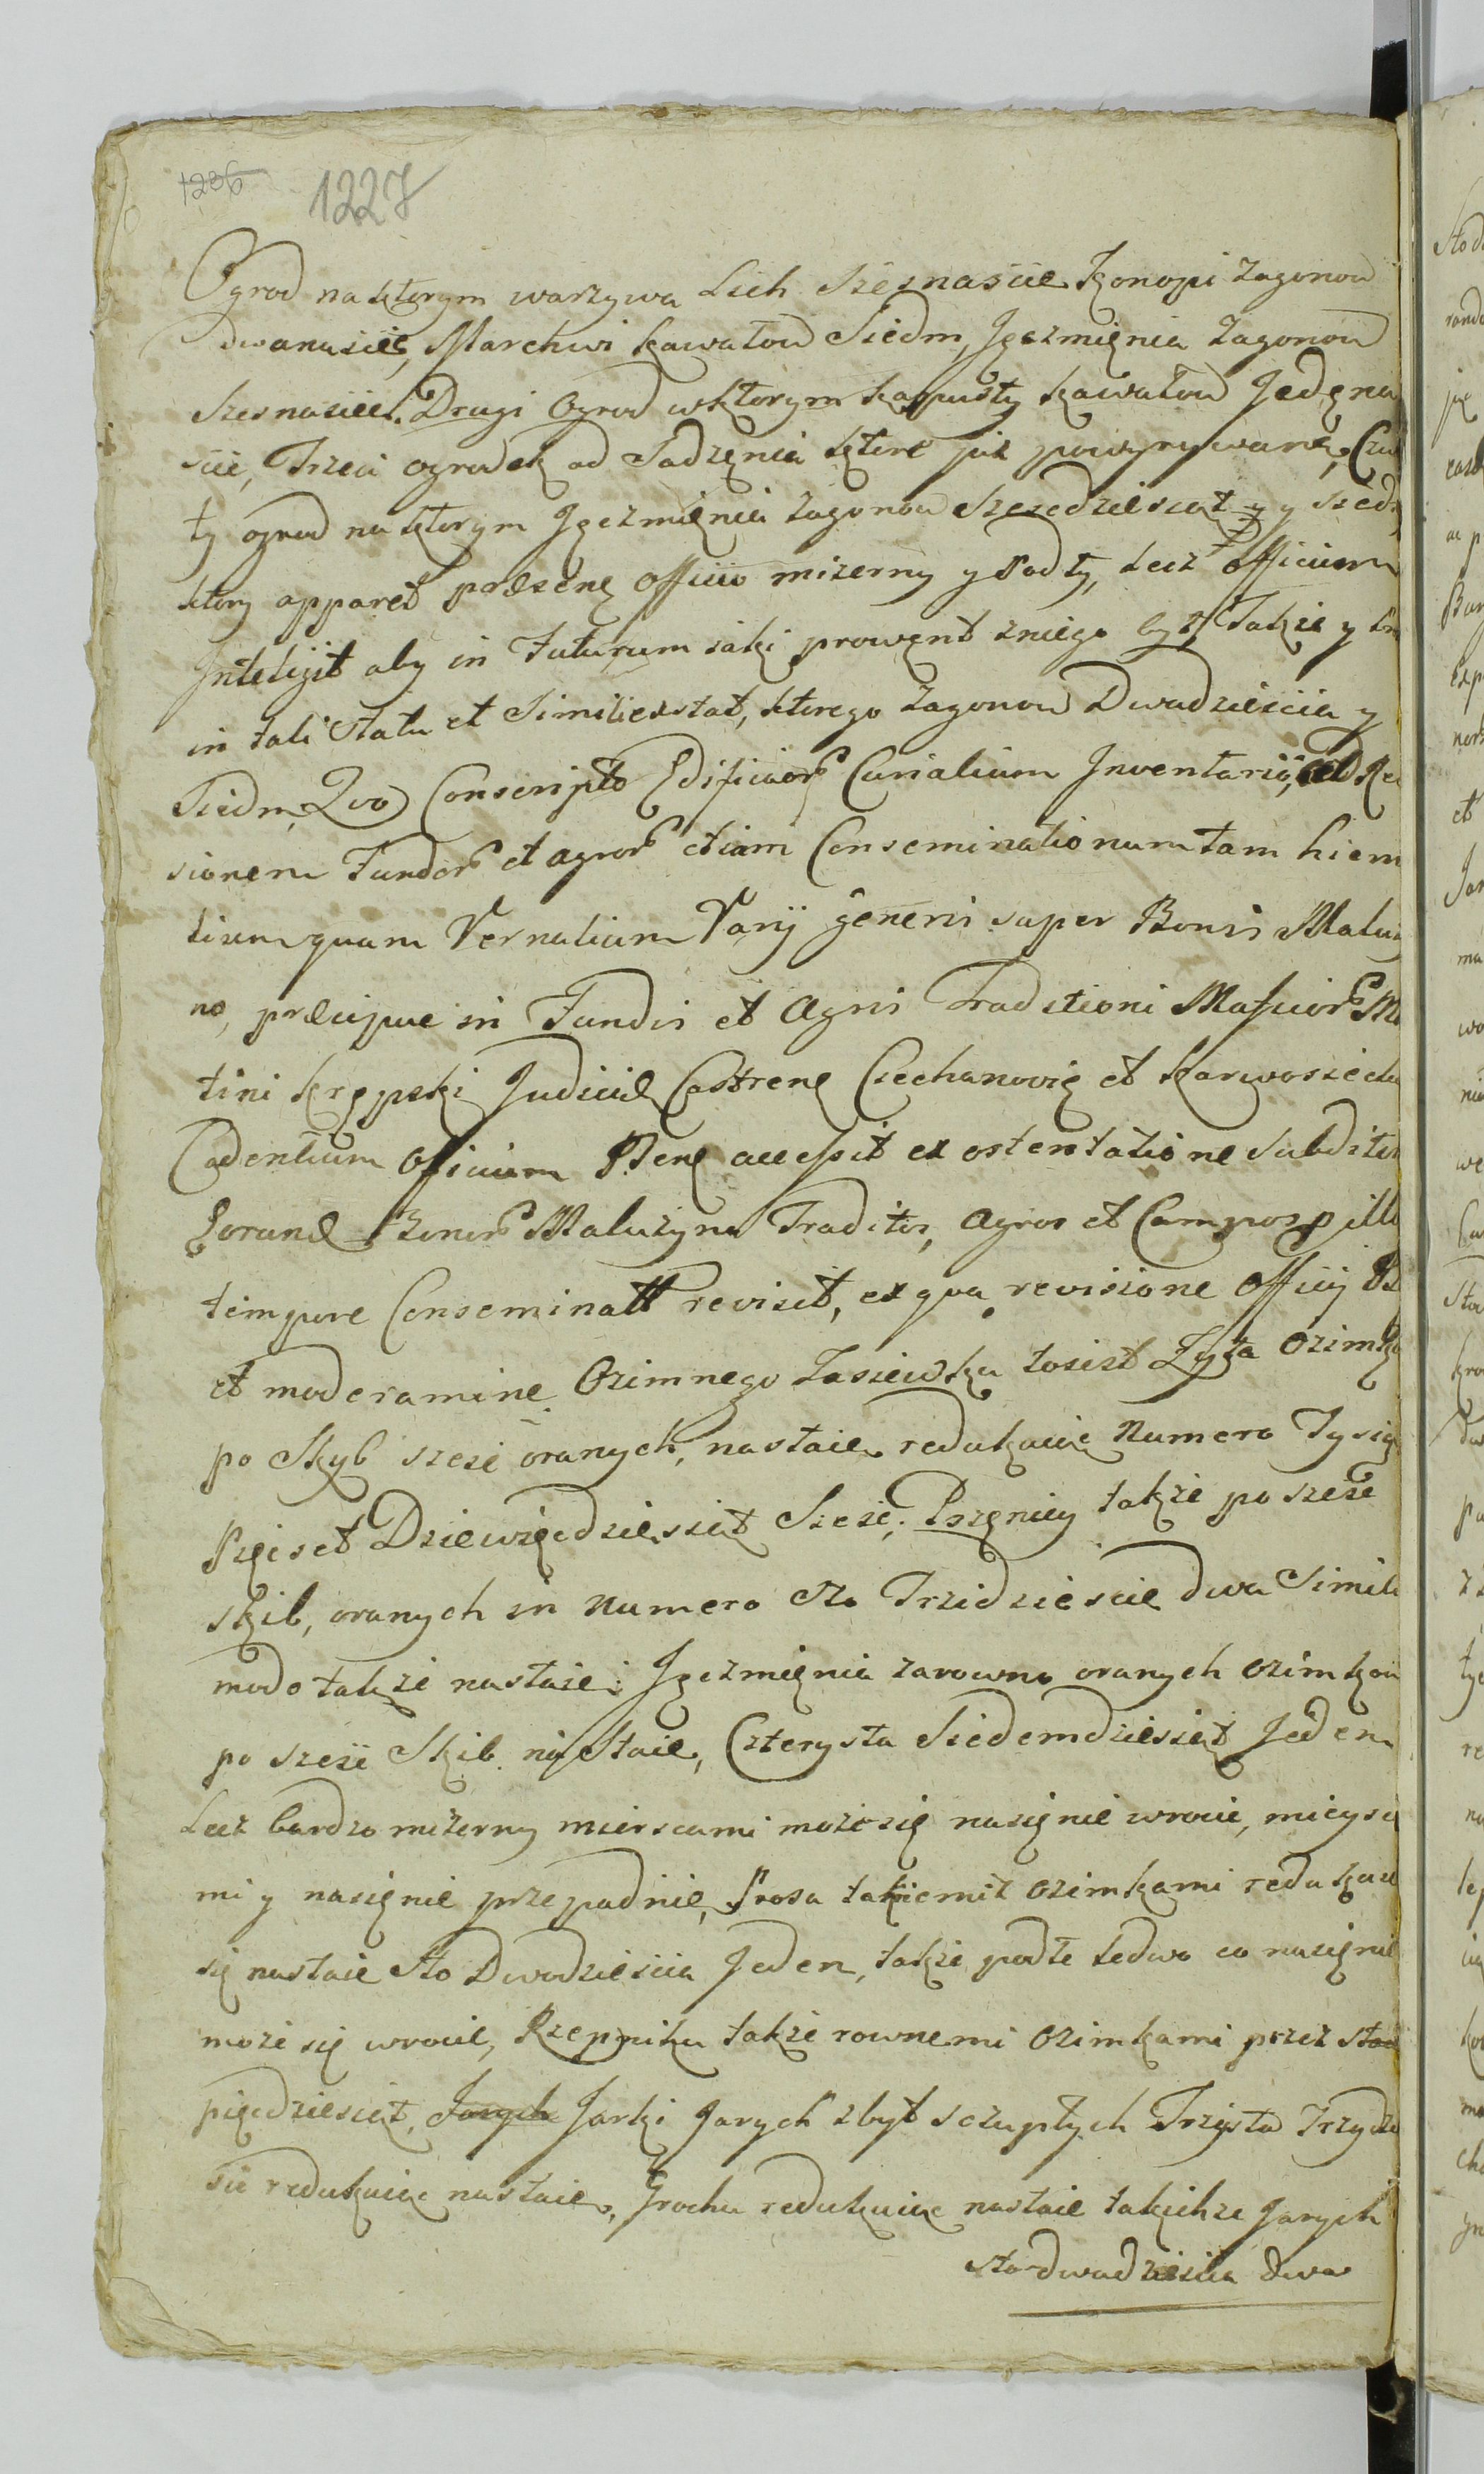 1206 1227
Ogrod na ktorym warzywa Lich Szesnascie Konopi Zagonow
dwanascie, Marchwi kawałow Siedm, Jęczmięnia Zagonow
Szesnascie. Drugi Ogrod w ktorym kapusty kawałow Jedęna
scie, Trzeci ogrodek od Sadzęnia ktore już powyrywane, Czw
ty ogrod na ktorym Jęczmięnia Zagonow Szescdziesiąt y y siedm
ktory apparet præsenę Officio mizerny y Podły, lecz Officium
Inteligit aby in Futurum jaki prowęnt zniego był Takze y
in tali Statu et Simili exstat, ktorego Zagonow Dwadziescia y
Siedm, Quo Conscripto Edificior Curialium Inventario, ad Re
sionem Fundor et agror etiam Conseminationum tam hiem
lium quam Vernalium Varij generis super Bonis Maluży
no, præcipue in Fundis et Agris Traditioni Mafficor Ma
tini Krępski Judicii Castrenę Ciechanovię et Karwosiecki
Cadentium Officium Psenę accessit ex ostentatione Subditor
Eorund Bonor Malużyno Traditor, Agros et Campos p illo
tempore Conseminatt revisit, ex qua revisione Officij Ps
et moderamine Ozimnego Zasiewku to jest Zyta Ozimk
po Skyb szesc oranych, na staie redukuiąc Numero Tysią
Pięcset Dziewięcdziesiąt Szesc, Pszęnicy także po szesc
skib, oranych in Numero Sto Trzidziescie dwa Simili
modo takze na staie; Jęczmięnia zarowno oranych ozimkow
po szesc Skib na Staie, Czterysta Siedemdziesiąt Jeden
Lecz bardzo mizerny mieyscami może się nasięnie wrocic, mieysca
mi y nasięnie przepadnie, Prosa takiemiż Ozimkami redukuią
się na staie Sto Dwadziescia Jeden, takze podłe ledwo co nasięnie
moze się wrocic, Rzepniku takze rownemi Ozimkami przez staie
pięcdziesiąt, Jarych Jarki Jarych zbyt sczupłych Trzysta Trzydzie
sci redukuiąc na staie, Grochu redukuiąc na staie takichze Jarych
sto dwadziescia dwa